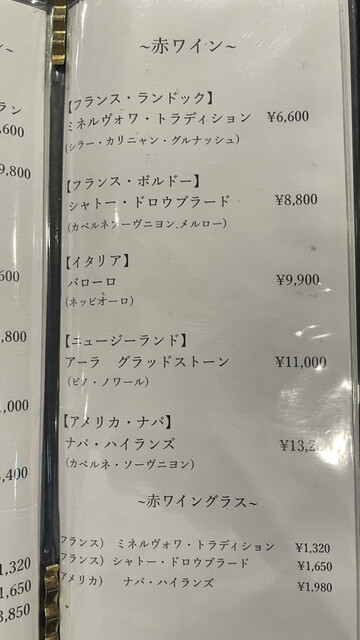 ~赤ワイン~
【フランス・ランドック】
ミネルヴォワ・トラディション ¥6,600
(シラー・カリニャン・グルナッシュ)
【フランス・ボルドー】
シャトー・ドロウブラード ¥8,800
(カベルネソーヴニヨン.メルロー)
【イタリア】
バローロ ¥9,900
(ネッビオーロ)
【ニュージーランド】
アーラ グラッドストーン ¥11,000
(ピノ・ノワール)
【アメリカ・ナパ】
ナパ・ハイランズ ¥13,2
(カベルネ・ソーヴニヨン)
~赤ワイングラス~
フランス) ミネルヴォワ・トラディション ¥1,320
フランス) シャトー・ドロウブラード ¥1,650
アメリカ) ナパ・ハイランズ ¥1,980
ン~
ラン
,600
9,800
600
,800
,000
,400
1,320
1,650
3,850